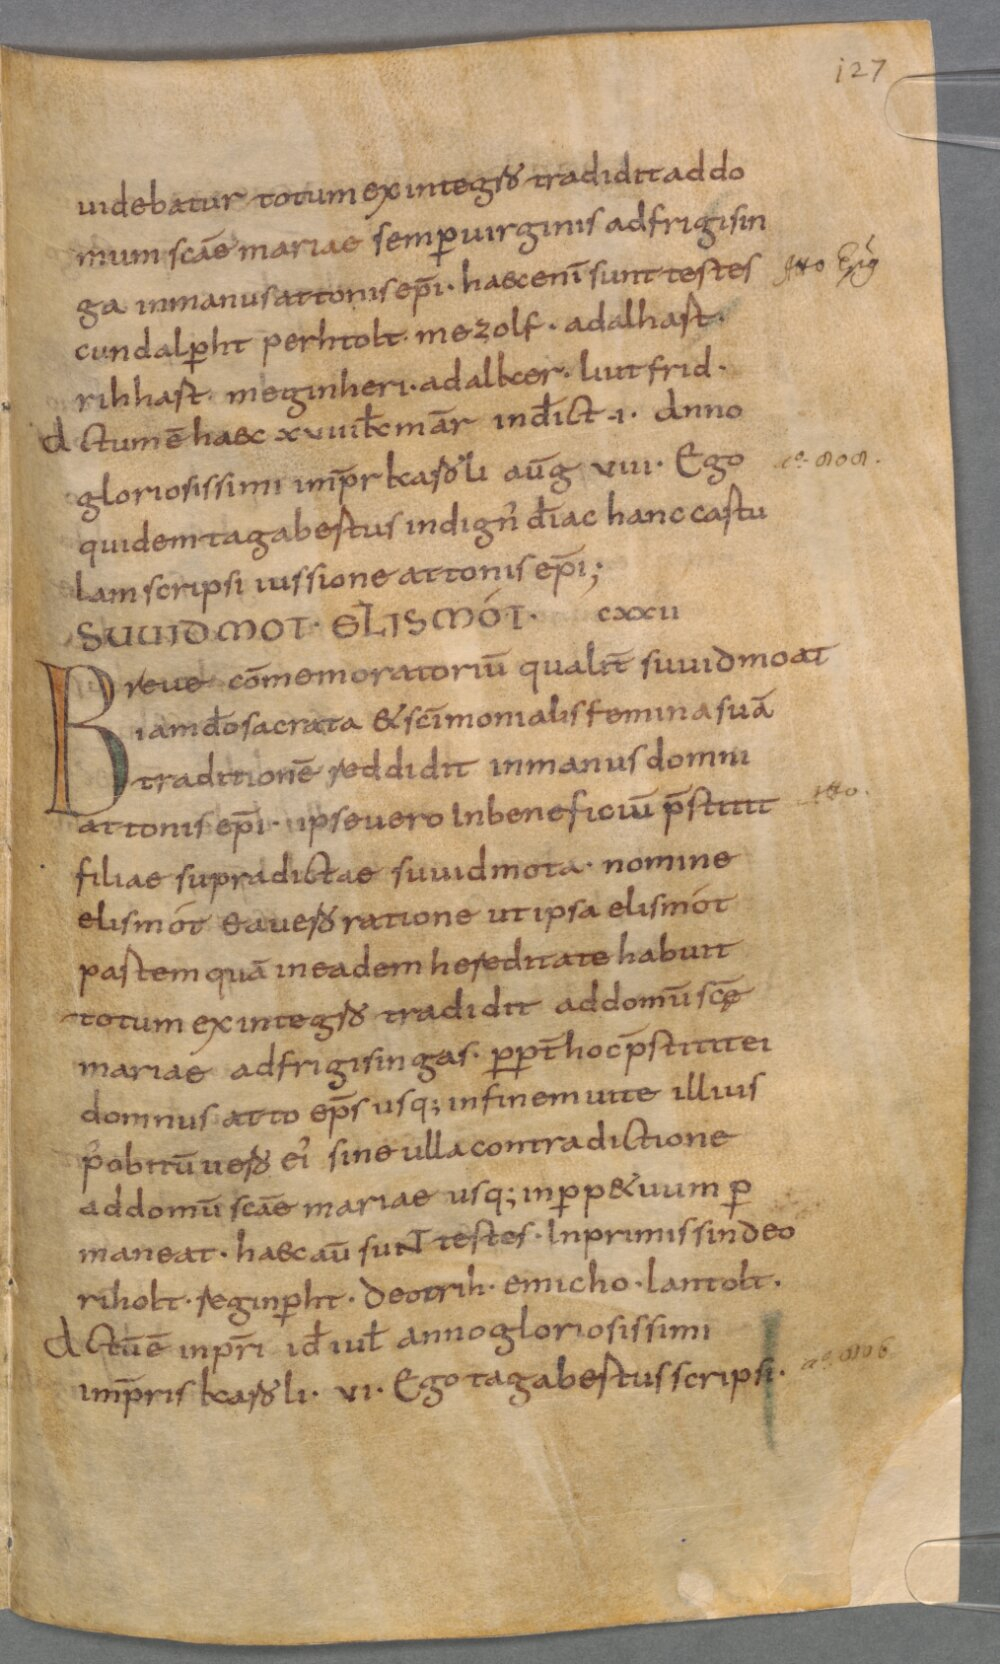 127
uidebatur totum ex integro tradidit ad do
mum scāe mariae semp uirginis ad frigisin
ga in manus attonis ep̄i · haec enī sunt testes
cundalp̄ht perhtolt · mezolf · adalhast ·
rihhast meginheri · adalker · liutfrid ·
Actum ē haec xviii kł mār indict · i · Anno
gloriosissimi imp̄r karoli aūg viii · Ego
quidem tagabertus indign̄ diac hanc cartu
lam scripsi iussione attonis ep̄i ;
SUUIDMOT · ELISMÓT · cxxii
Breue cōmemoratoriū qualit̄ suuidmoat
iam dō sacrata & sc̄imonialis femina suā
traditionē reddidit in manus domni
attonis ep̄i · ipse uero In beneficiū p̄stitit
filiae supradictae suuidmota · nomine
elismót ea uero ratione ut ipsa elismót
partem quā in eadem hereditate habuit
totum ex integro tradidit ad domū scę̄
mariae ad frigisingas · ꝓpt̄ hoc p̄stitit ei
domnus atto ep̄s usq; in finem uite illius
p̄ obitū uero ei' sine ulla contradictione
ad domū scāe mariae usq; in ꝑp&uum ꝑ
maneat · haec aū sunt testes · In primis sindeo
riholt · reginp̄ht · deotrih · emicho · lantolt ·
Actū ē in pr̄i id iuł anno gloriosissimi
imp̄ris karoli · vi · Ego tagabertus scripsi ·
Atto